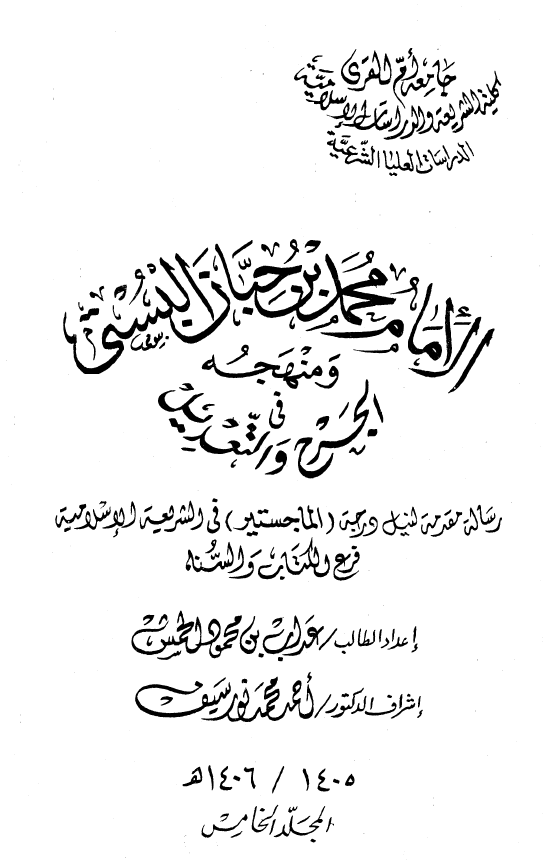 جامعة أم القرى
كلية الشريعة والدراسات الإسلامية
الدراسات العليا الشرعية
الإمام محمد بن حبان البستي
ومنهجه
في
الجرح والتعديل
رسالة مقدمة لنيل درجة (الماجستير) في الشريعة الإسلامية
فرع الكتاب والسنة
إعداد الطالب / عداب بن محمود الحمش
إشراف الدكتور / أحمد محمد نور سيف
١٤٠٥ / ١٤٠٦هـ
المجلد الخامس